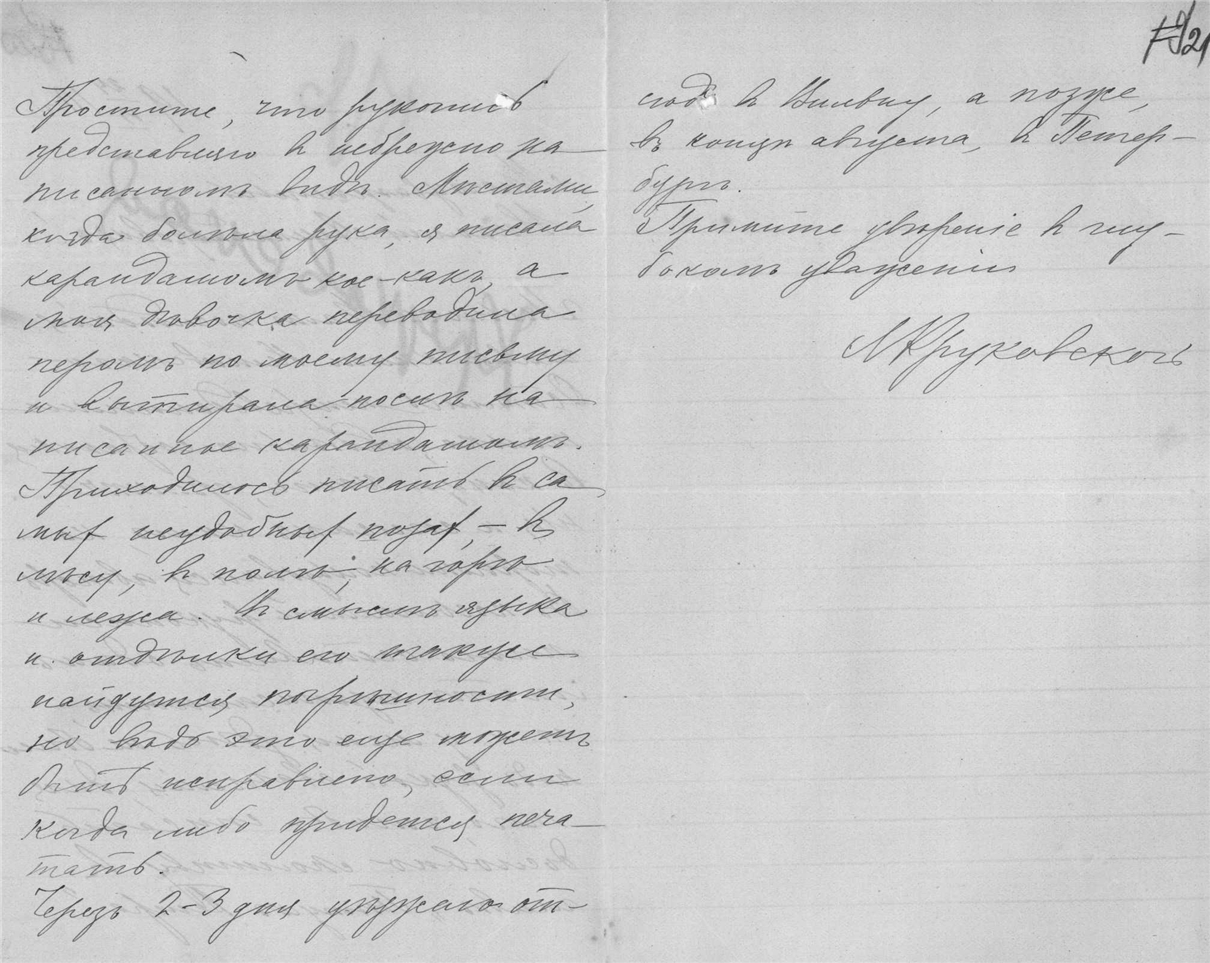 Простите, что рукопись
представляю в небрежно на
писанномъ видѣ. Мѣстами,
когда болѣла рука, я писала
карандашомъ кое-какъ, а
моя дѣвочка переводила
перомъ по моему письму
и вытирала послѣ на
писанное карандашомъ.
Приходилось писать въ са
мыхъ неудобныхъ позахъ, – въ
лѣсу, въ полѣ, на горѣ
и лежа. Въ смыслѣ языка
и отдѣлки его также
найдутся погрѣшности,
но вѣдь это еще можетъ
быть исправлено, если
когда либо придется печа–
тать.
Черезъ 2–3 дня уѣзжаю от–
сюда въ Вильну, а позже,
въ концѣ августа, въ Петер–
бургъ.
Примите увѣреніе въ глу–
бокомъ уваженіи
М Круковской